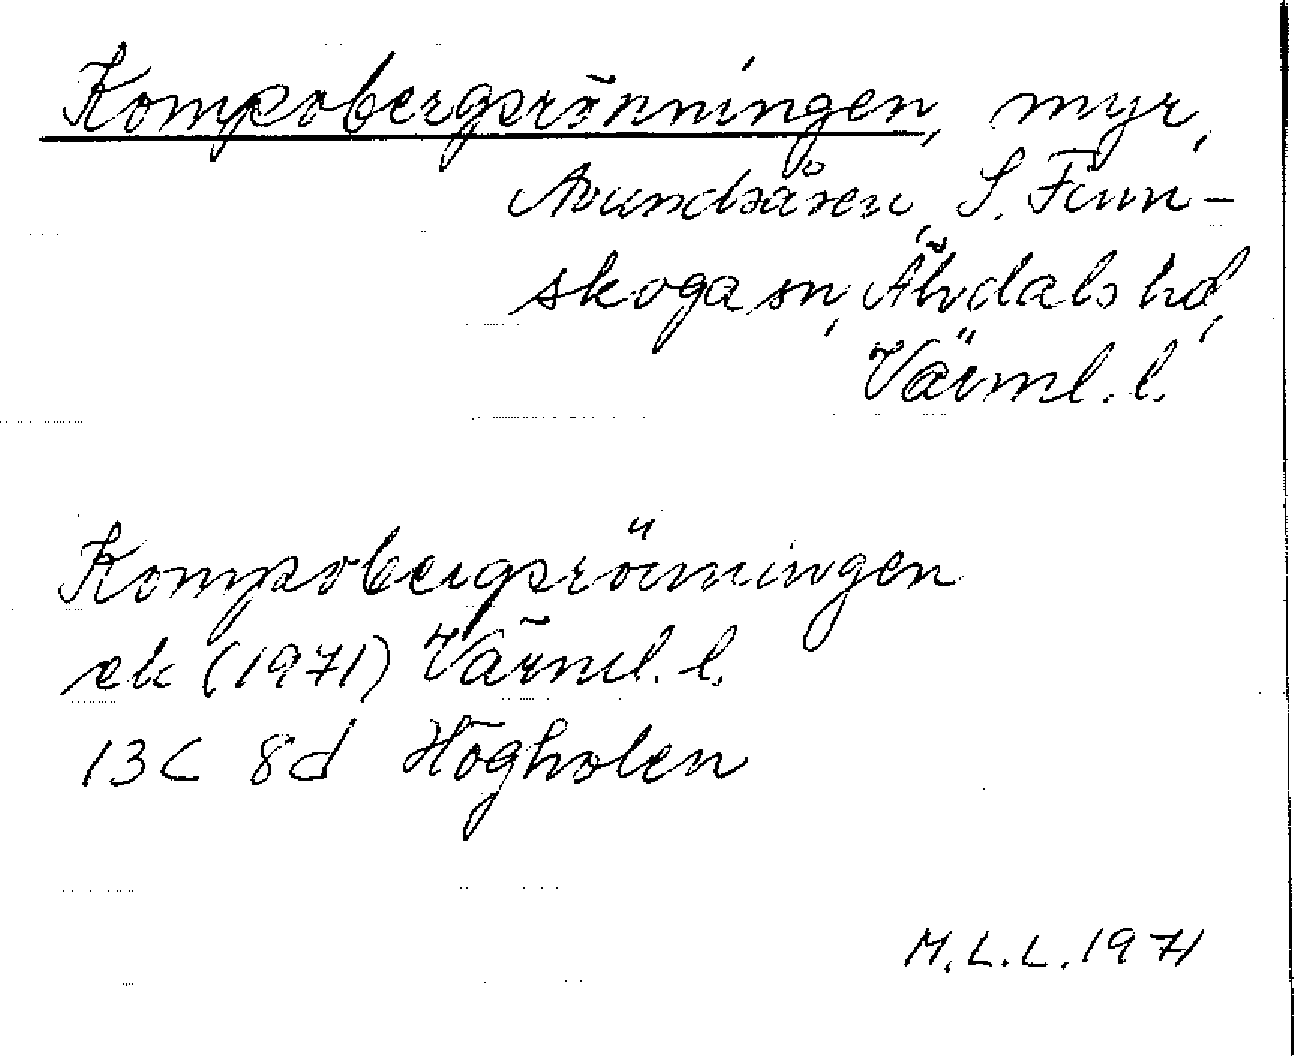 Kompobergsrönningen, myr,
Avundsåsen, S. Finn-
skoga sn, Älvdals hd,
Värml. l.
Kompobergsrönningen
ek (1971) Värml. l.
13C 8d Högholen
M.L.L. 1971